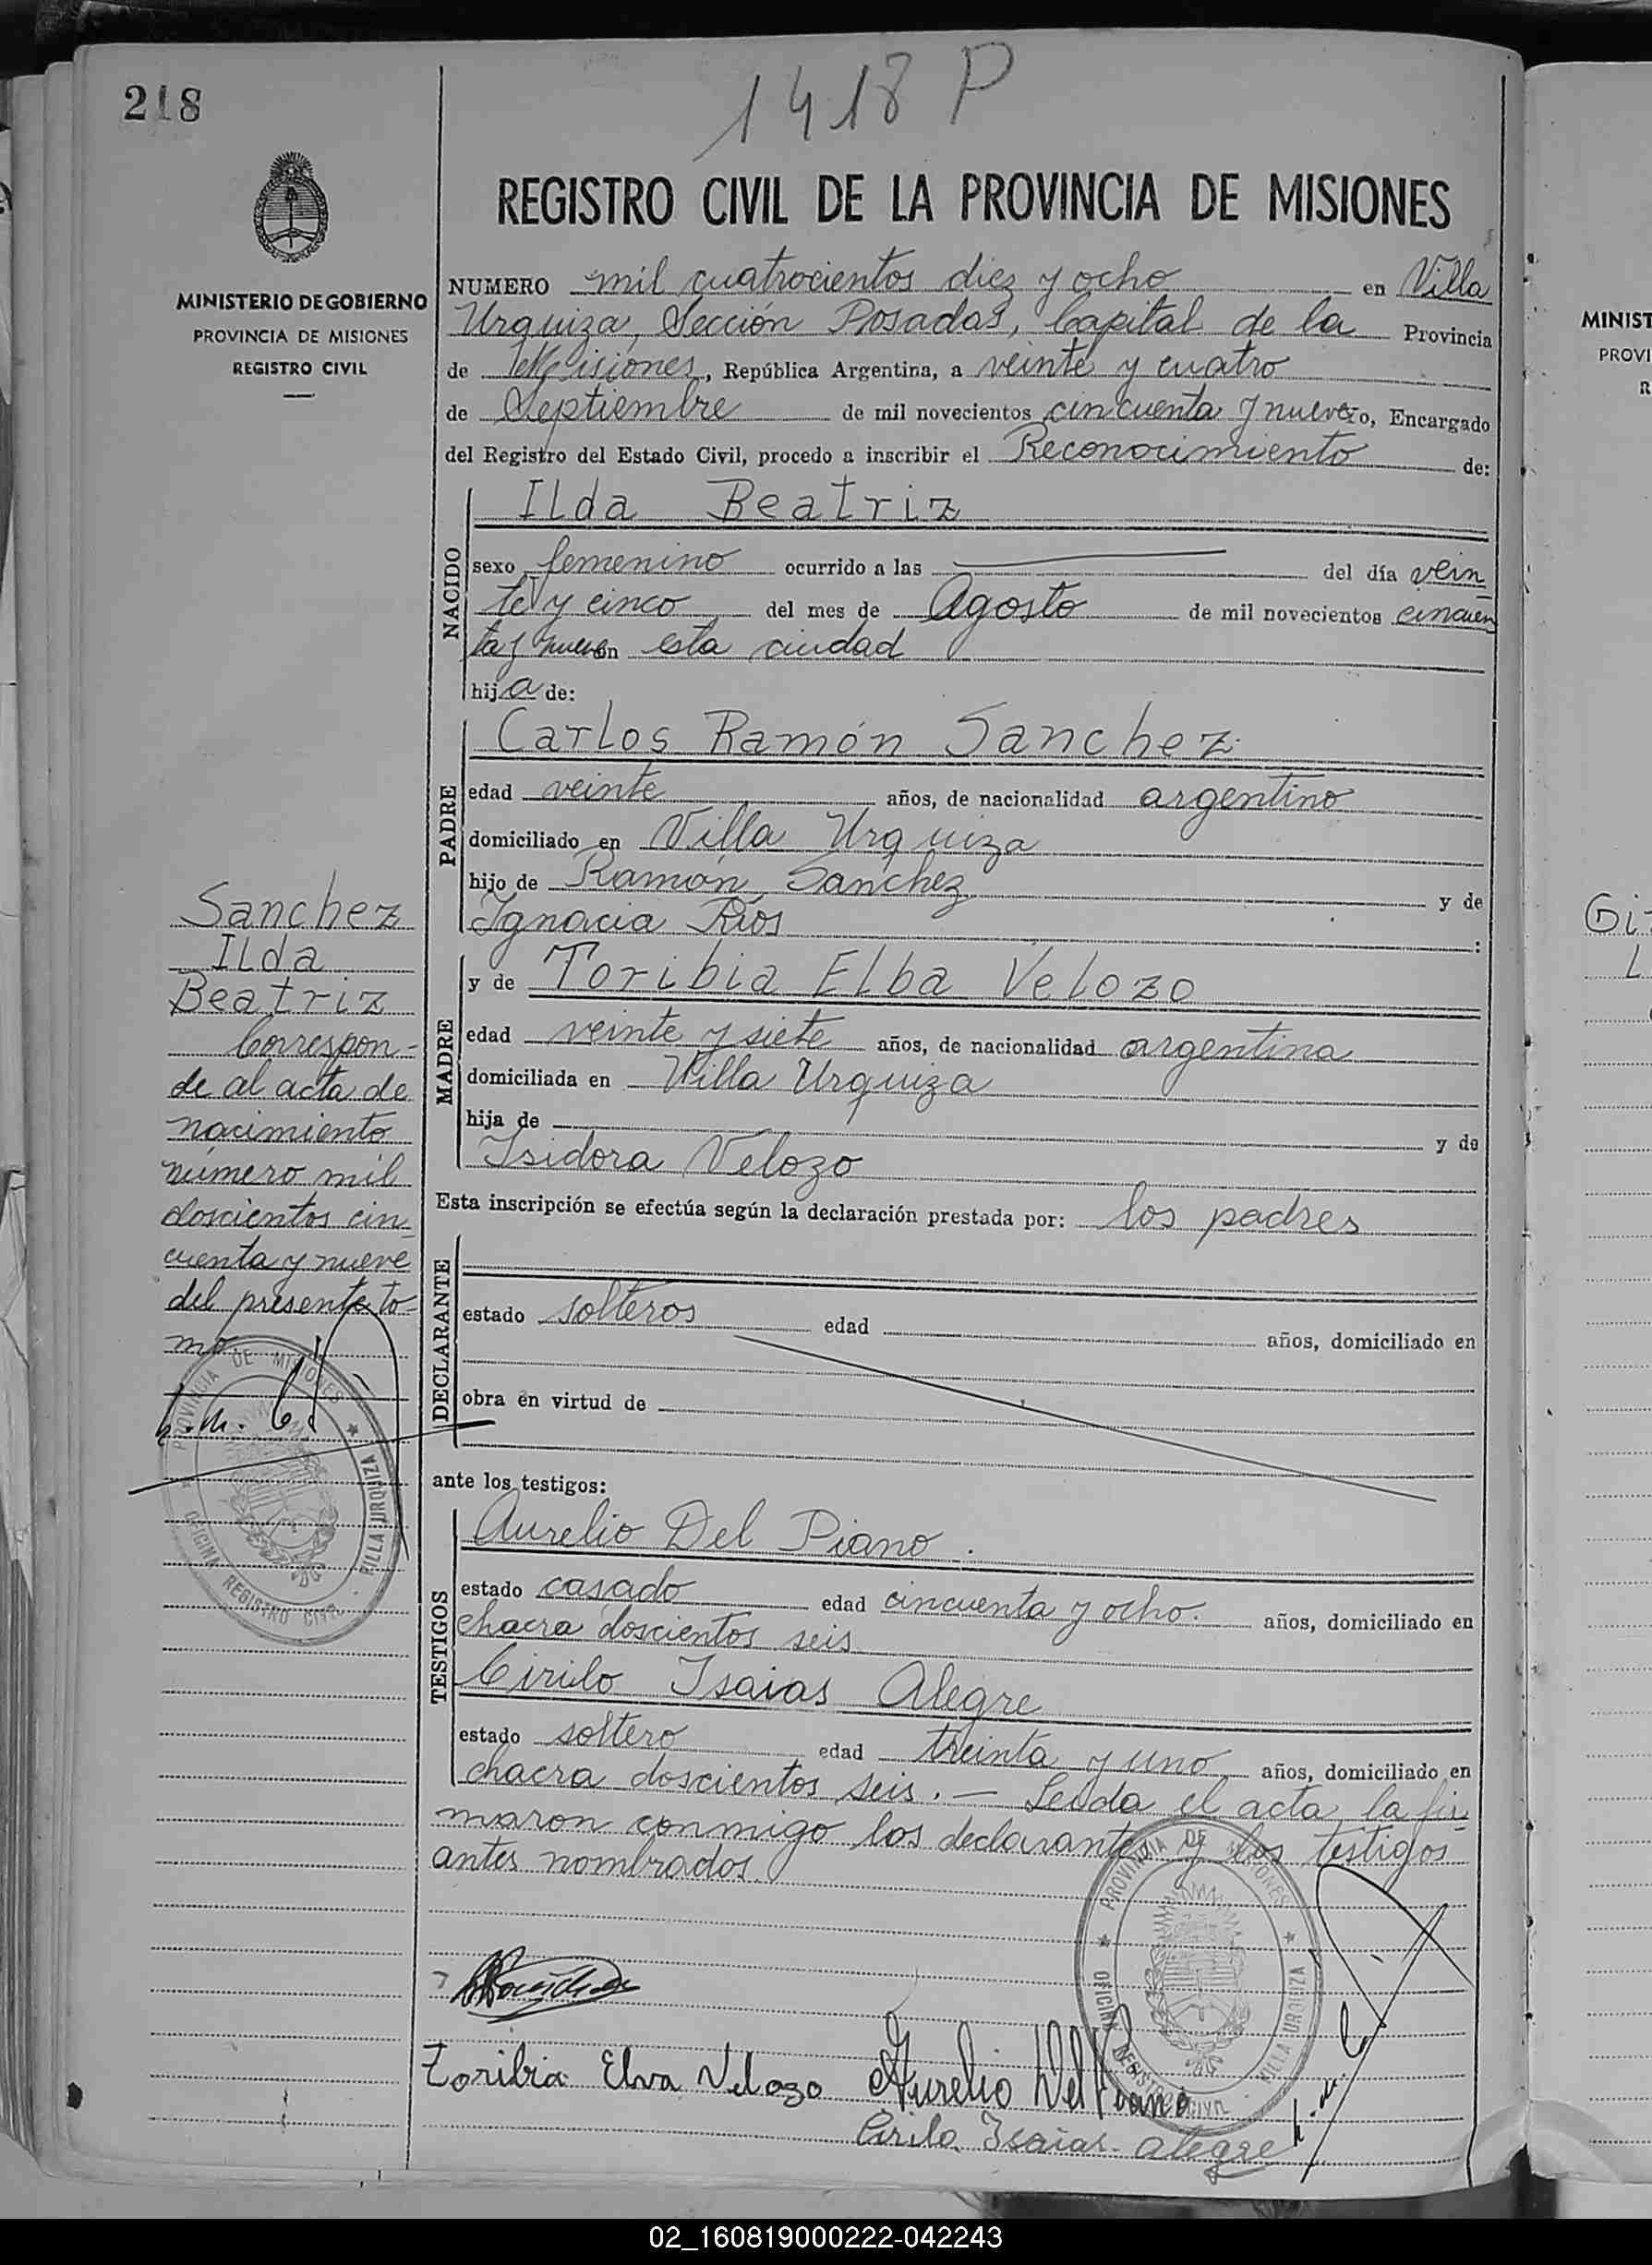 218
1418 P
REGISTRO CIVIL DE LA PROVINCIA DE MISIONES
MINISTERIO DE GOBIERNO
PROVINCIA DE MISIONES
REGISTRO CIVIL
NUMERO mil cuatrocientos diez y ocho en Villa
Urquiza, Sección Posadas, Capital de la Provincia
de Misiones, República Argentina, a veinte y cuatro
de Septiembre de mil novecientos cincuenta y nueve, Encargado
del Registro del Estado Civil, procedo a inscribir el Reconocimiento de:
NACIDO
Ilda Beatriz
sexo femenino ocurrido a las del día vein
te y cinco del mes de Agosto de mil novecientos cincuen
ta y nueve en esta ciudad
hija de:
PADRE
Carlos Ramón Sanchez
edad veinte años, de nacionalidad argentino
domiciliado en Villa Urquiza
hijo de Ramón Sanchez y de
Ignacia Ríos :
MADRE
y de Toribia Elba Velozo
edad veinte y siete años, de nacionalidad argentina
domiciliada en Villa Urquiza
hija de y de
Isidora Velozo
Esta inscripción se efectúa según la declaración prestada por: los padres
DECLARANTE
estado solteros edad años, domiciliado en
obra en virtud de
ante los testigos:
TESTIGOS
Aurelio Del Piano.
estado casado edad cincuenta y ocho. años, domiciliado en
chacra doscientos seis
Cirilo Isaias Alegre
estado soltero edad treinta y uno años, domiciliado en
chacra doscientos seis. — Leida el acta la fir
maron conmigo los declarantes y los testigos
antes nombrados.
Sanchez
Ilda
Beatriz
Correspon-
de al acta de
nacimiento
número mil
doscientos cin
cuenta y nueve
del presente to-
mo
PROVINCIA DE MISIONES
OFICINA REGISTRO CIVIL
VILLA URQUIZA
Toribia Elva Velozo
Aurelio Del Piano
Cirilo Isaias Alegre
PROVINCIA DE MISIONES
OFICINA REGISTRO CIVIL
VILLA URQUIZA
MINIST
PROVI
R
Gi
L
02_160819000222-042243